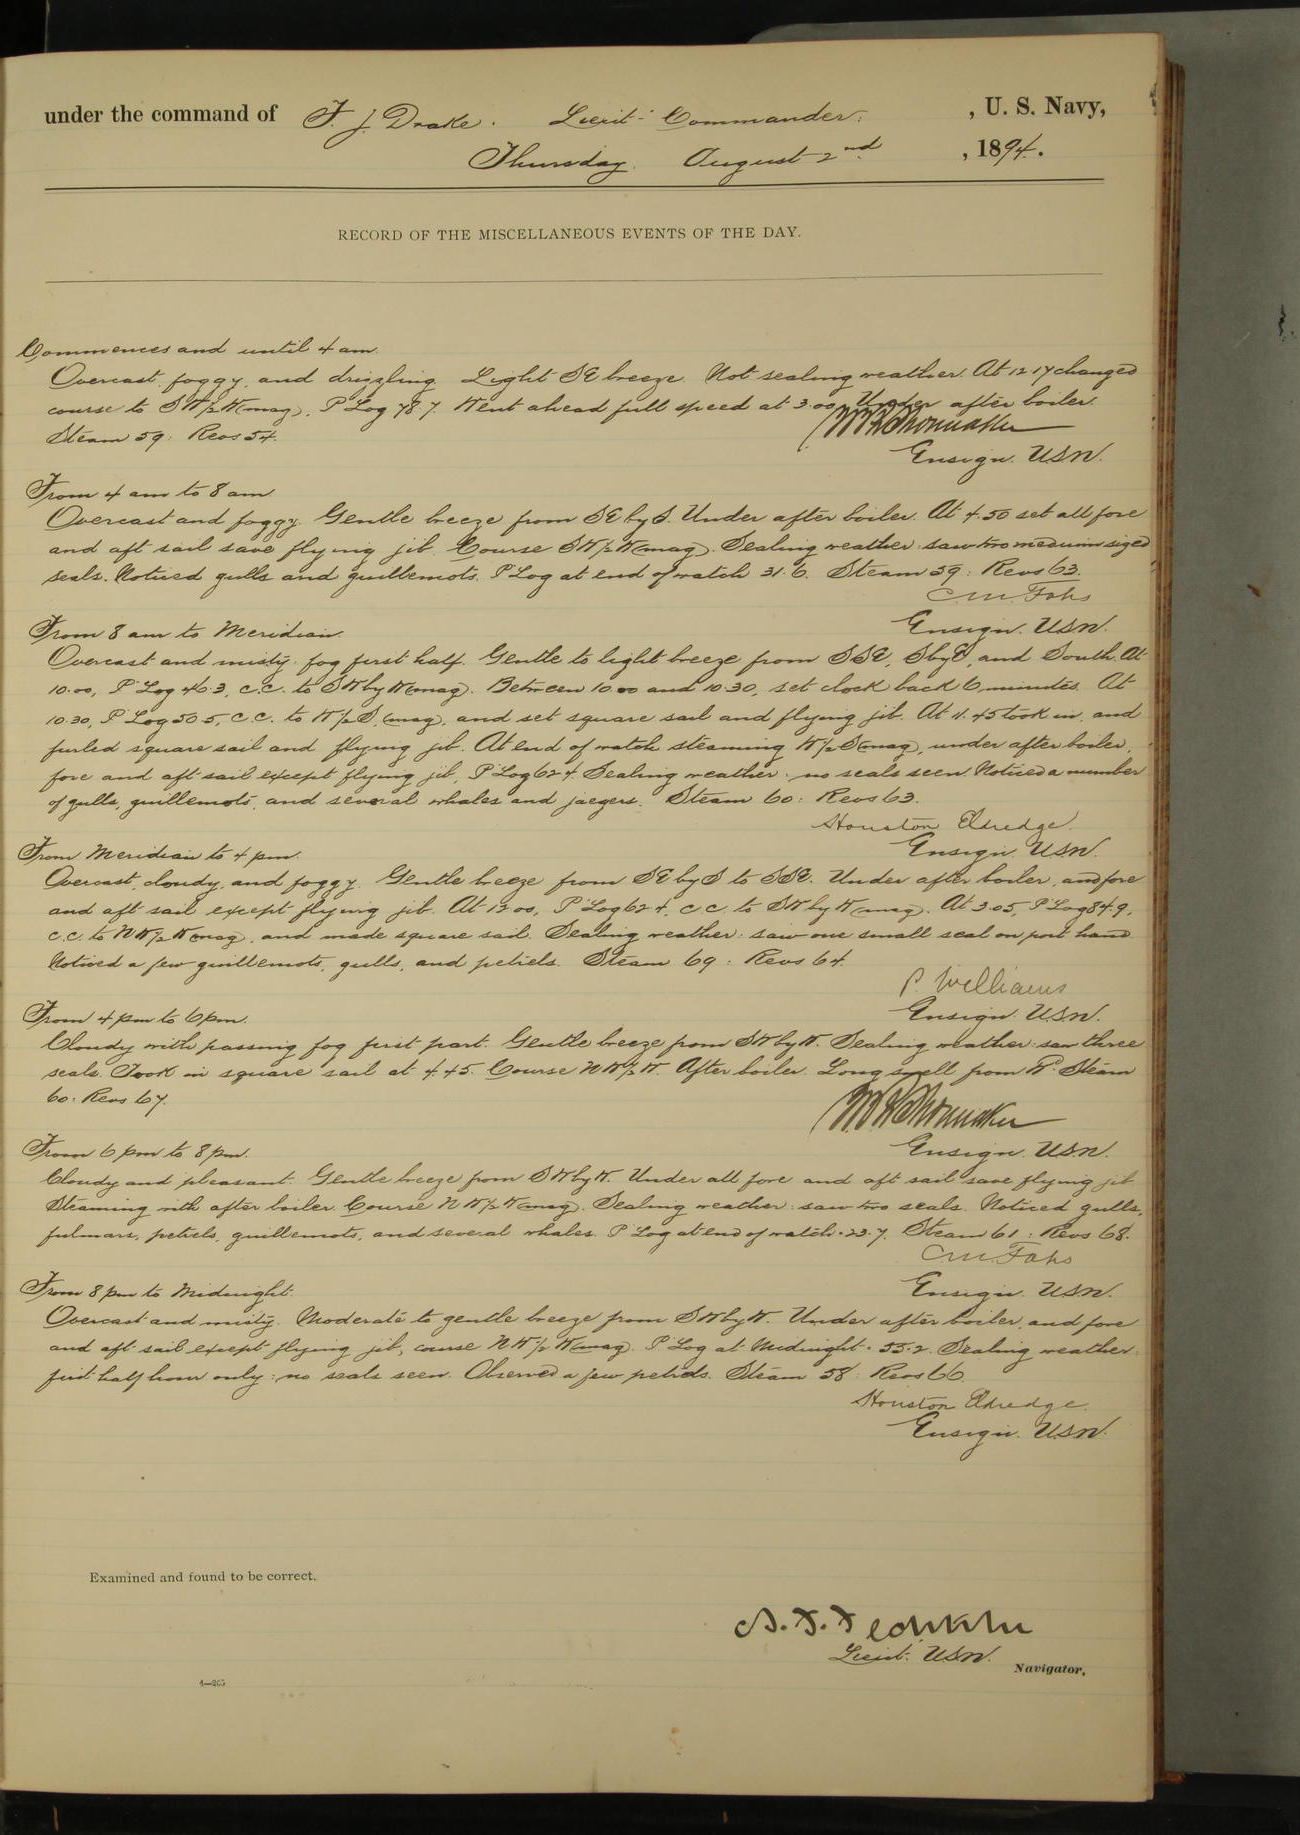 under the command of F. J. Drake. Lieut-Commander, , U. S. Navy,
Thursday. August 2nd , 1894.
RECORD OF THE MISCELLANEOUS EVENTS OF THE DAY.
Commences and until 4 am.
Overcast, foggy, and drizzling. Light SE breeze. Not sealing weather. At 12.17 changed
course to SW½W (mag). P'Log 78.7. Went ahead full speed at 3.00. Under after boiler.
Steam 59: Revs 54.
Ensign. USN.
From 4 am to 8 am.
Overcast and foggy. Gentle breeze from SE by S. Under after boiler. At 4.50 set all fore
and aft sail save flying jib. Course SW½W (mag). Sealing weather: saw two medium sized
seals. Noticed gulls and guillemots. P'Log at end of watch 31.6. Steam 59: Revs 63.
C. M. Fahs
Ensign. USN.
From 8 am to Meridian.
Overcast and misty: fog first half. Gentle to light breeze from SSE, S by E, and South. At
10.00, P'Log 46.3, c.c. to SW by W (mag). Between 10.00 and 10.30, set clock back 6 minutes. At
10.30, P'Log 50.5, c.c. to W½S, (mag), and set square sail and flying jib. At 11.45 took in, and
furled square sail and flying jib. At end of watch steaming W½S (mag), under after boiler,
fore and aft sail except flying jib, P'Log 62.4. Sealing weather: no seals seen. Noticed a number
of gulls, guillemots, and several whales and jaegers. Steam 60: Revs 63.
Houston Eldredge.
Ensign. USN.
From Meridian to 4 pm.
Overcast, cloudy, and foggy. Gentle breeze from SE by S to SSE. Under after boiler, and fore
and aft sail except flying jib. At 12.00, P'Log 62.4, c.c. to SW by W (mag). At 3.05, P'Log 84.9,
c.c. to NW½W (mag), and made square sail. Sealing weather: saw one small seal on port hand
Noticed a few guillemots, gulls, and petrels. Steam 69: Revs 64.
P. Williams
Ensign. USN.
From 4 pm to 6 pm.
Cloudy with passing fog first part. Gentle breeze from SW by W. Sealing weather: saw three
seals. Took in square sail at 4.45. Course NW½W. After boiler. Long swell from W. Steam
60: Revs 67.
Ensign. USN.
From 6 pm to 8 pm.
Cloudy and pleasant. Gentle breeze from SW by W. Under all fore and aft sail save flying jib
Steaming with after boiler. Course NW½W (mag). Sealing weather: saw two seals. Noticed gulls,
fulmars, petrels, guillemots, and several whales. P'Log at end of watch. 23.7. Steam 61: Revs 68.
C. M. Fahs
Ensign. USN.
From 8 pm to Midnight.
Overcast and misty. Moderate to gentle breeze from SW by W. Under after boiler, and fore
and aft sail except flying jib, course NW½W (mag). P'Log at Midnight. 55.2. Sealing weather:
first half hour only: no seals seen. Observed a few petrels. Steam 58: Revs 66.
Houston Eldredge.
Ensign. USN.
Examined and found to be correct.
Lieut. USN.
Navigator.